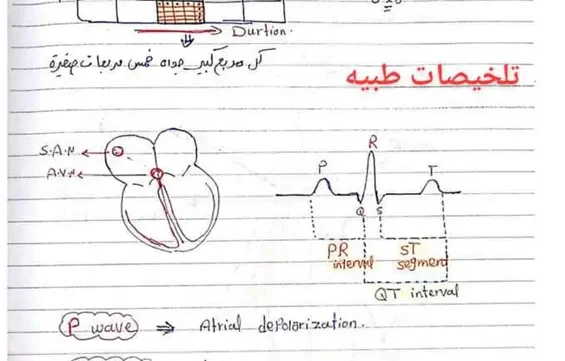 Durtion.
كل مربع كبير جواه خمس مربعات صغيرة
تلخيصات طبيه
S.A.N
A.V.N
P
R
T
Q
S
PR interval
ST segment
QT interval
P wave ⇒ Atrial depolarization.